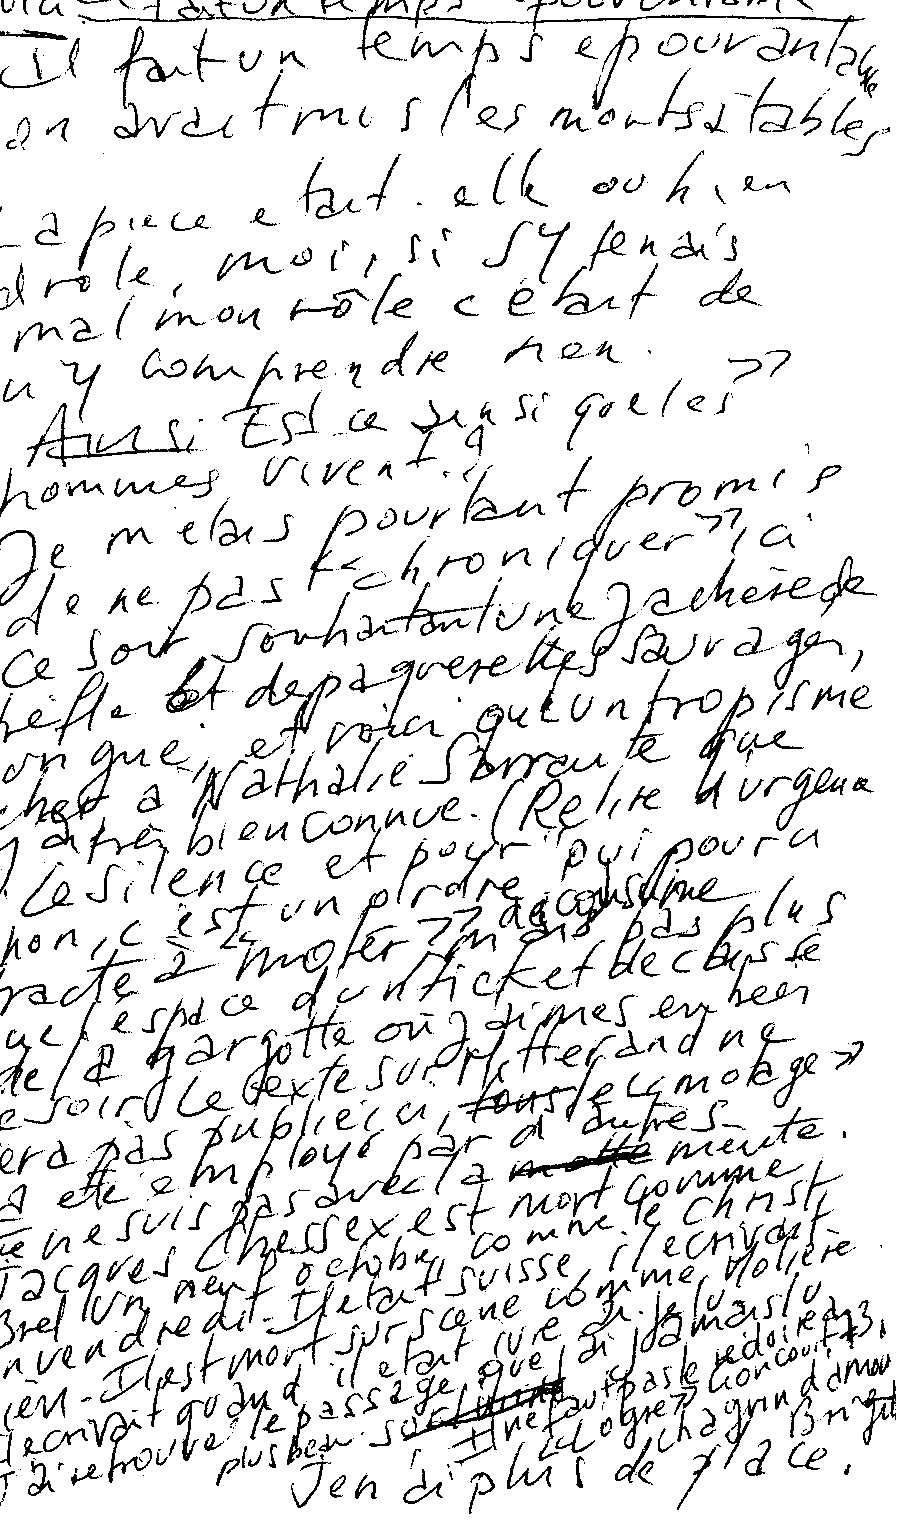 fait un temps épouvantable
Il fait un temps epouvantable
on avait mis les morts à tables
La piece etait. elle ou h, en
drole, moi, si s y tenais
mal mon rôle c etait de
n y comprendre rien.
Ainsi Est ce ainsi que les ››
hommes vivent. ?
Je m etais pourtant promis
de ne pas ‹‹ chroniquer ›› ici
ce soir, souhaitant une jachère de
trèfle et de paquerettes sauvages,
on gue, et voici qu un tropisme
cher à Nathalie Sarraute que
j ai très bien connue. (Relire d urgence
Le silence et pour un oui pour un
non, c est un ordre de cousine
racte à ‹‹ moter ›› mais pas plus
que l espace d un ticket de caisse
de la margotte où j aimes en
ce soir. Le texte sur Mitterand ne
sera pas publié ici, tous le ‹‹ motage ››
a été employé par d autres
Je ne suis pas avec la motte meute.
Jacques Chessex est mort comme
Brel un neuf octobre, comme le Christ,
un vendredi. Il etait suisse, il ecrivait
bien. Il est mort sur scene comme Molière
Il ecrivait quand il etait ivre
J ai retrouvé le passage que j ai jamais lu
plus beau sur Il ne faut pas le redoire
L Ogre ›› Goncourt 73,
chagrin d amour
J en ai plus de place.